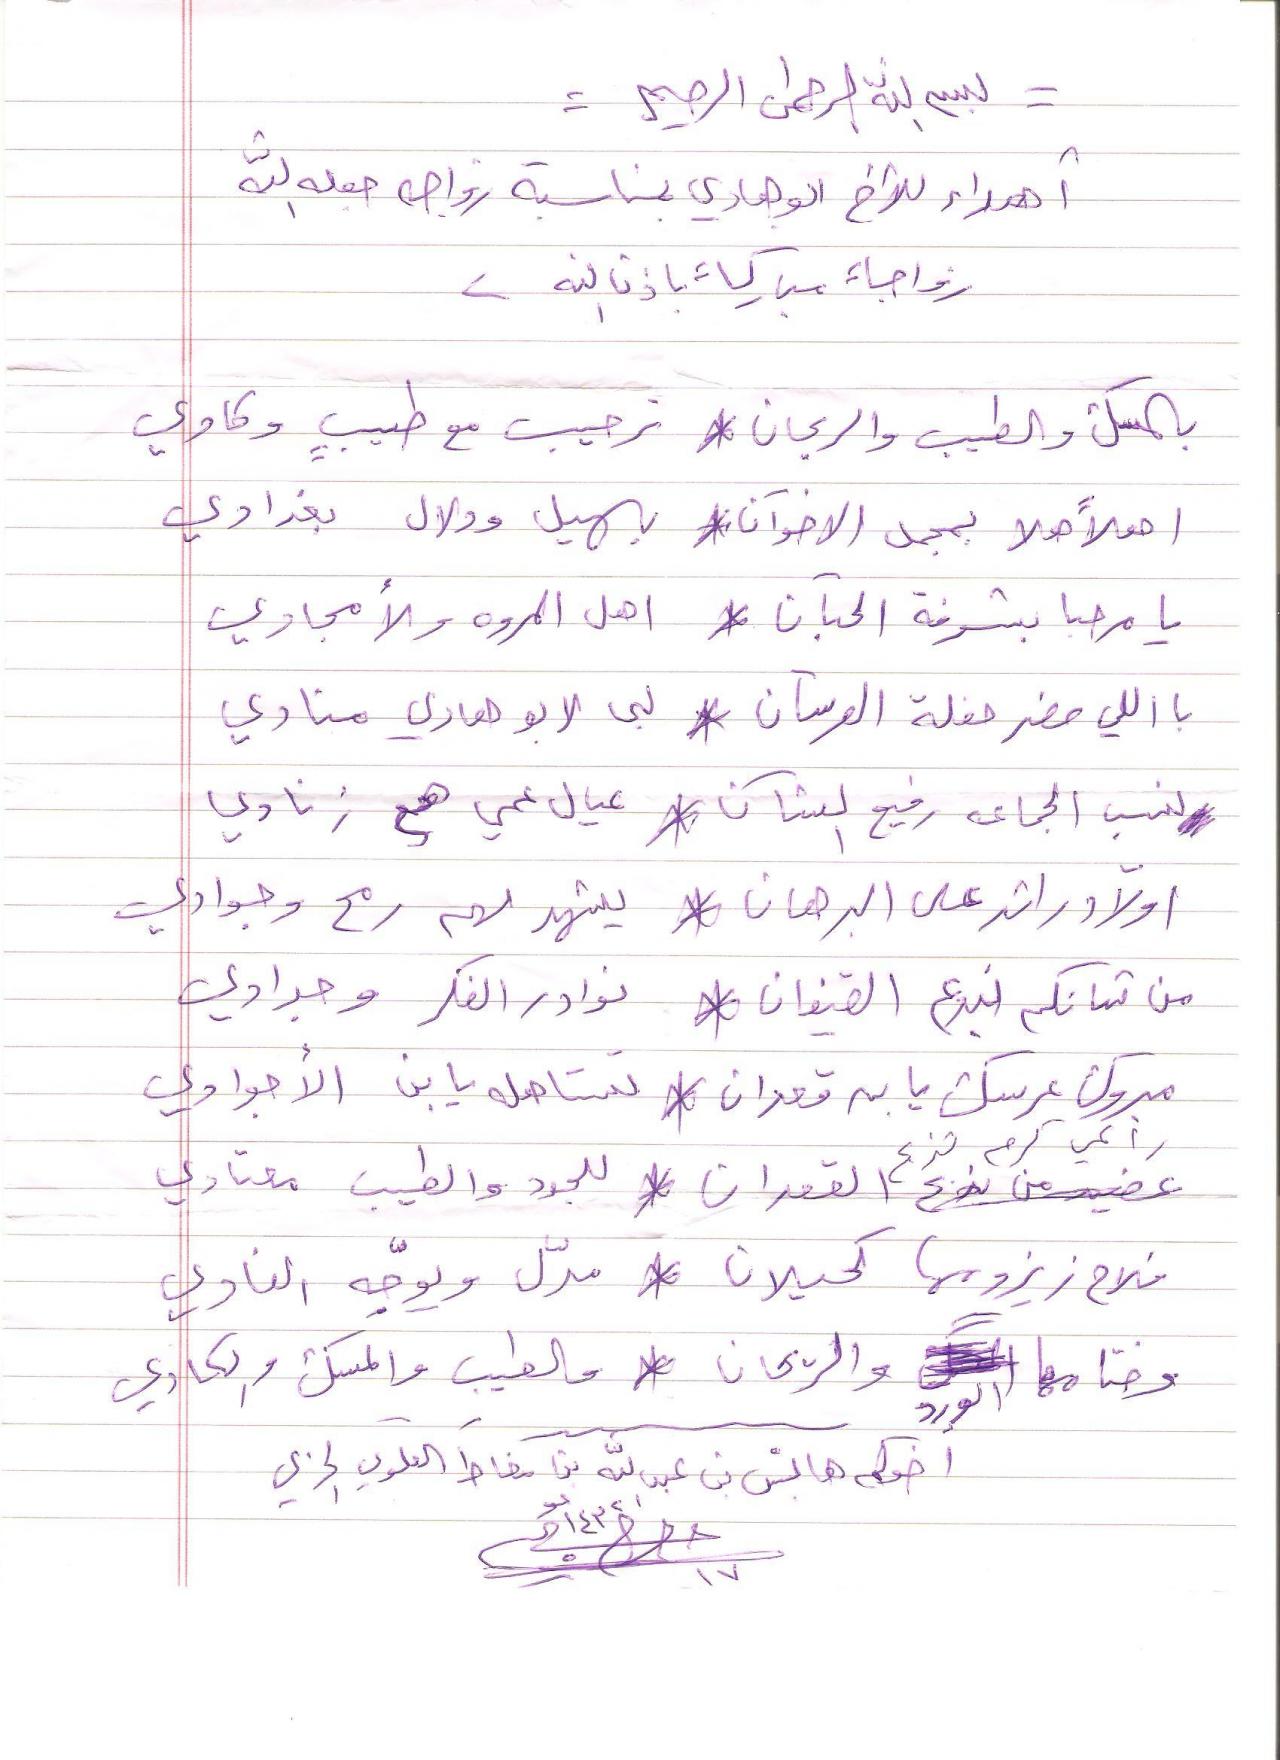 = بسم الله الرحمن الرحيم =
أهداء للأخ ابوهادي بمناسبة زواجه جعله الله
زواجاً مباركاً باذن الله
بالمسك والطيب والريحان * ترحيب مع طيبٍ وكادي
اهلاً هلا بمجمل الاخوآن * بهيل ودلال بغدادي
يا مرحبا بشوفة الخلآن * اهل المروه والأمجادي
يا اللي حضر حفلة العرسآن * لبى لابو هادي منادي
رفيع الشآن * عيال عمي هم زنادي
اولآد راشد على البرهان * يشهد لهم رمح وجوادي
من شانكم نبدع القيفان * نوادر الفكر وجدادي
مبروك عرسك يا بن قعدان * تستاهله يا بن الأجوادي
راعي كرم
القعدان * للجود والطيب معتادي
كحيلان * مدلّ ويوجّه الغادي
وختامها الورد والريحان * والطيب والمسك والكادي
أخوكم هايس بن عبدالله بن العلوي الحربي
١٤٣٤
١٧